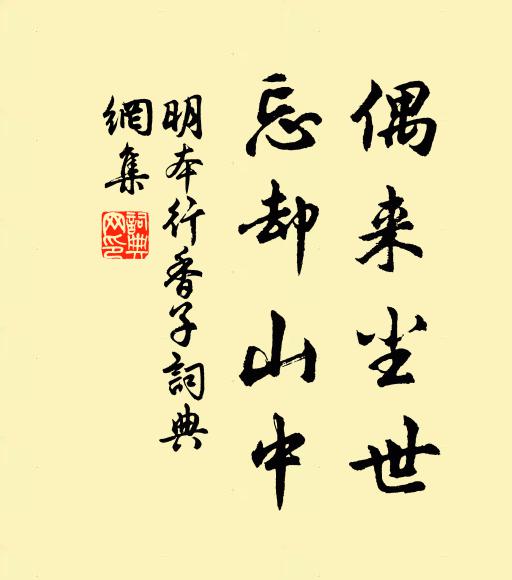 偶来尘世
忘却山中
明本行香子詞典
網集
詞典
网印